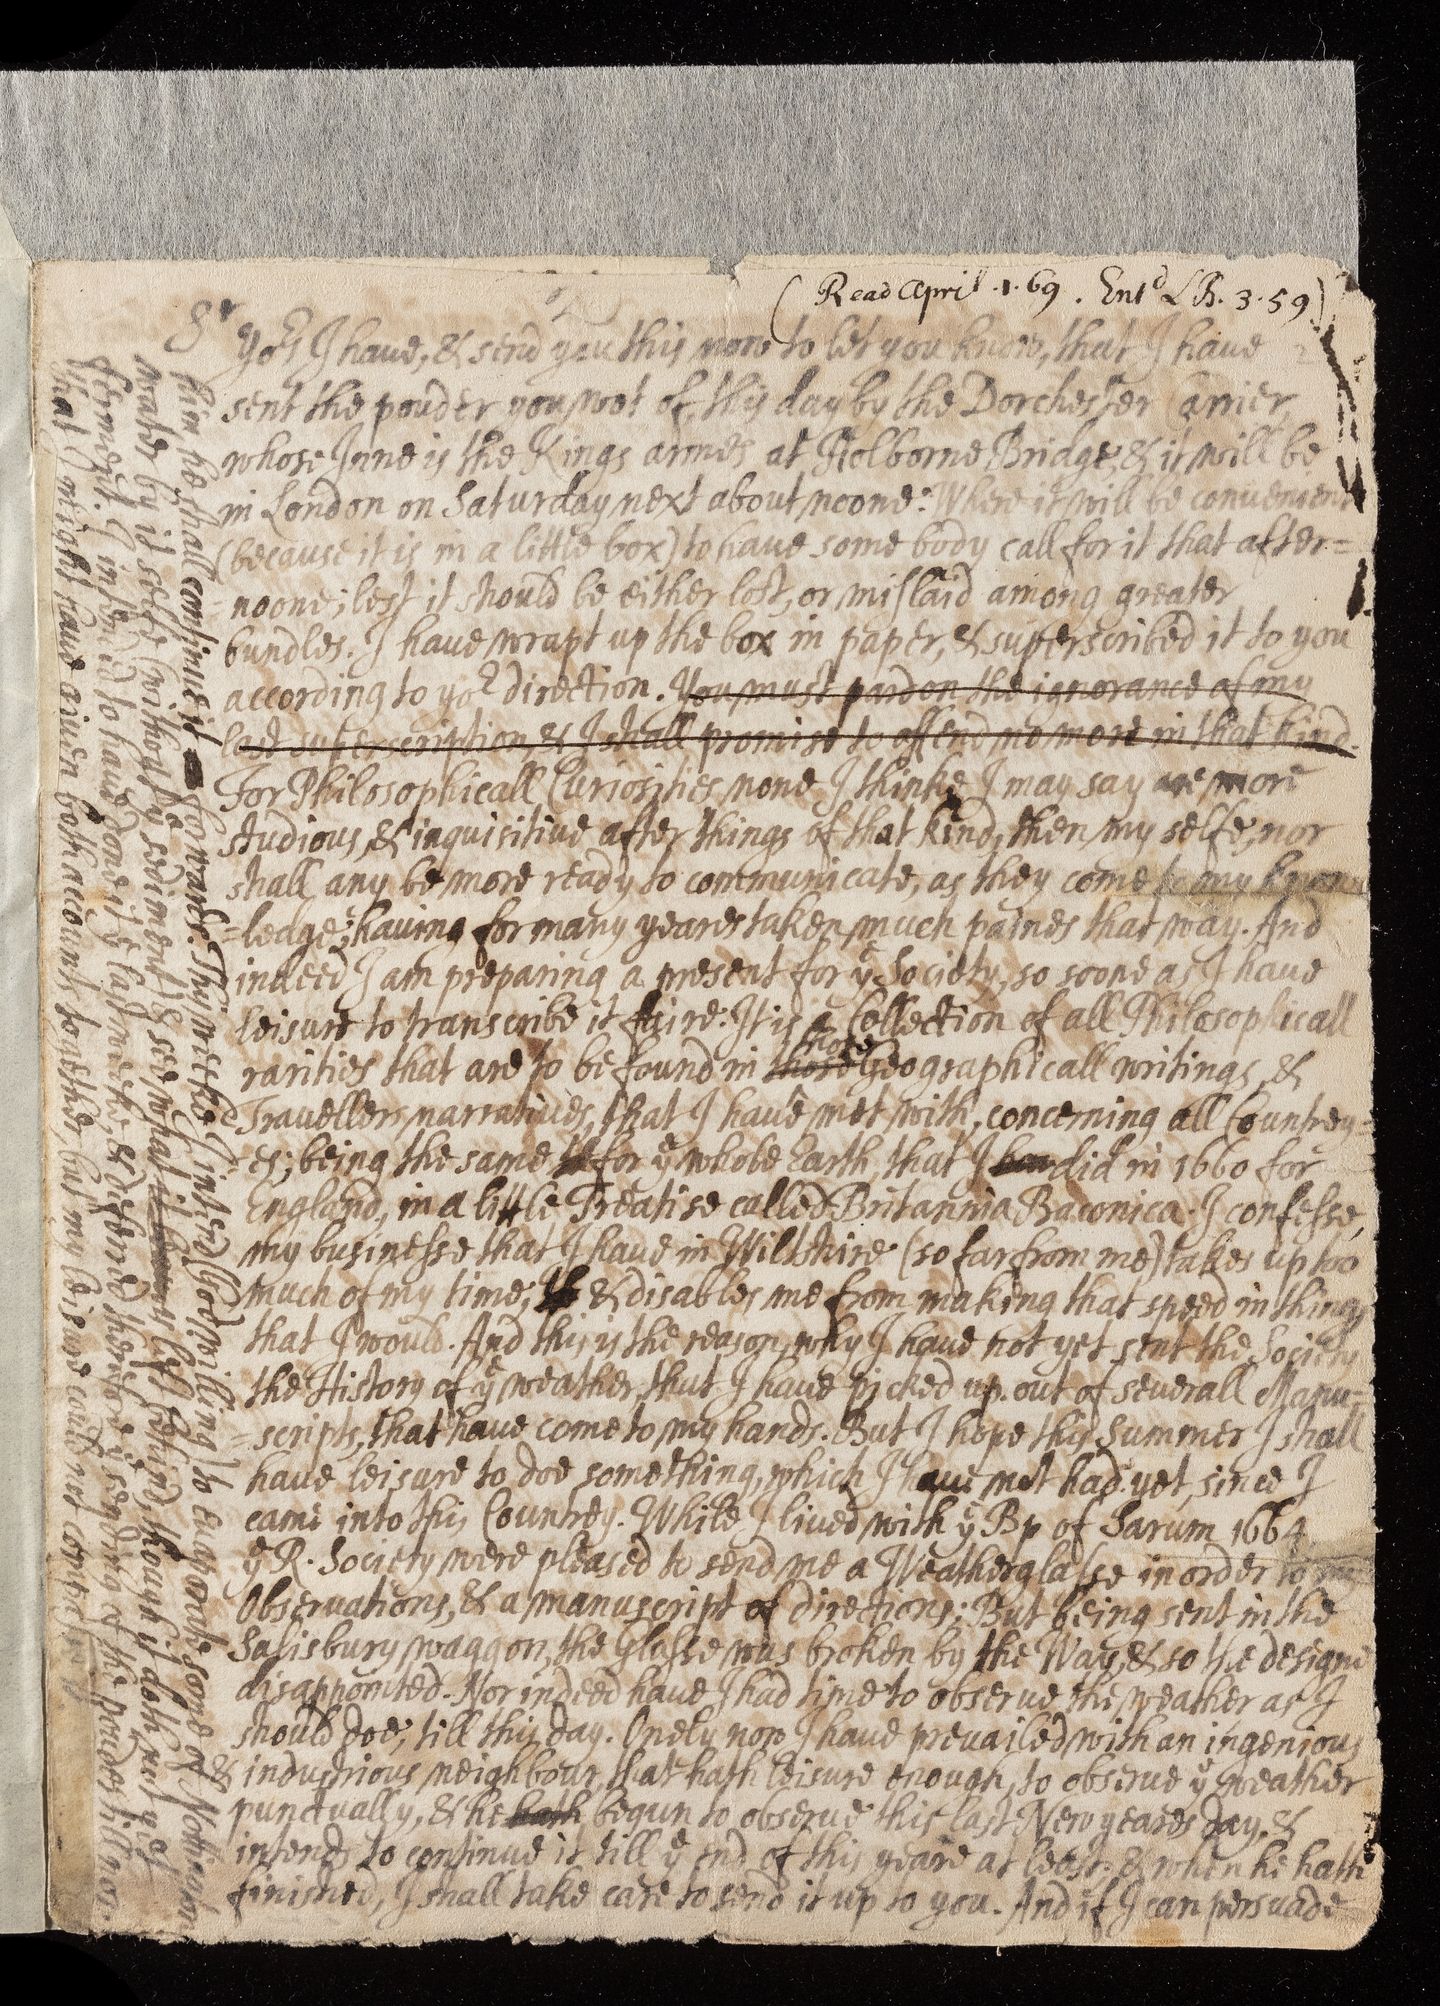 (Read April .1. 69. Entd LB. 3. 59)
Sr
yors I have, & send you this now to let you know, that I have
sent the pouder you wot of, this day by the Dorchester Carrier,
whose Inne is the Kings armes at Holborne Bridge, & it will be
in London on Saturday next about noone: Where it will be convenient
(because it is in a little box) to have some body call for it that after=
=noone; lest it should be either lost, or mislaid among greater
bundles. I have wrapt up the box in paper, & superscribed it to you
according to yor direction. You must pardon the ignorance of my
last superscription & I shall promise to offend no more in that kind.
For Philosophicall Curiosities none I thinke I may say are more
studious, & inquisitive after things of that kind, then my selfe, nor
shall any be more ready to communicate, as they come to my know
=ledge; having for many yeares taken much paines that way. And
indeed I am preparing a present for ye Society, so soone as I have
leisure to transcribe it faire: It is a Collection of all Philosophicall
rarities that are to be found in those those Geographicall writings, &
Travellers narratives, that I have met with, concerning all Countrey=
=es; being the same for ye whole Earth, that I did in 1660 for
England, in a little Treatise called Britannia Baconica. I confesse,
my businesse that I have in Wiltshire (so far from me) takes up too
much of my time, & disables me from making that speed in things
that I would. And this is the reason, why I have not yet sent the Society
the History of ye weather, that I have picked up out of severall Manu=
=scripts, that have come to my hands. But I hope this Summer I shall
have leisure to doe something, which I have not had yet, since I
came into this Countrey. While I lived with ye Bp of Sarum 1664
ye R. Society were pleased to send me a Weatherglasse in order to my
Observations, & a manuscript of directions; But being sent in the
Salisbury waggon, the Glasse was broken by the Way, & so the designe
disappointed. Nor indeed have I had time to observe the weather as I
should doe, till this day. Onely now I have prevailed with an ingenious
& industrious neighbour, that hath leisure enough, to observe ye weather
punctually, & he hath begun to observe this last New yeares day, &
intends to continue it till ye end of this yeare at least; & when he hath
finished, I shall take care to send it up to you. And if I can persuade
him he shall continue it forwards. This weeke I intend (God willing) to evaporate some of Nottington
water by it selfe (without ye sediment) & see what is left behind, though it doth not yet
ferment. I intended to have done it ye last weeke, & deferred therefore ye sending of the pouder till now
that I might have given both accounts together, but my leisure could not